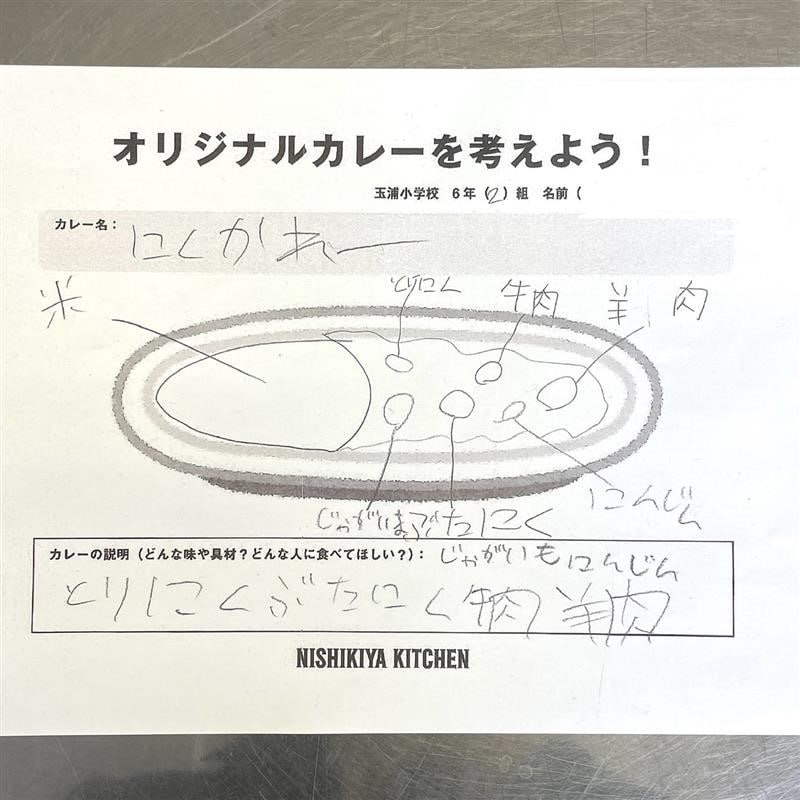 オリジナルカレーを考えよう！
玉浦小学校 6年（2）組 名前（
カレー名：にくかれー
米
とりにく
牛肉
羊肉
じゃがいも
ぶたにく
にんじん
カレーの説明（どんな味や具材？どんな人に食べてほしい？）：じゃがいも にんじん
とりにくぶたにく牛肉羊肉
NISHIKIYA KITCHEN